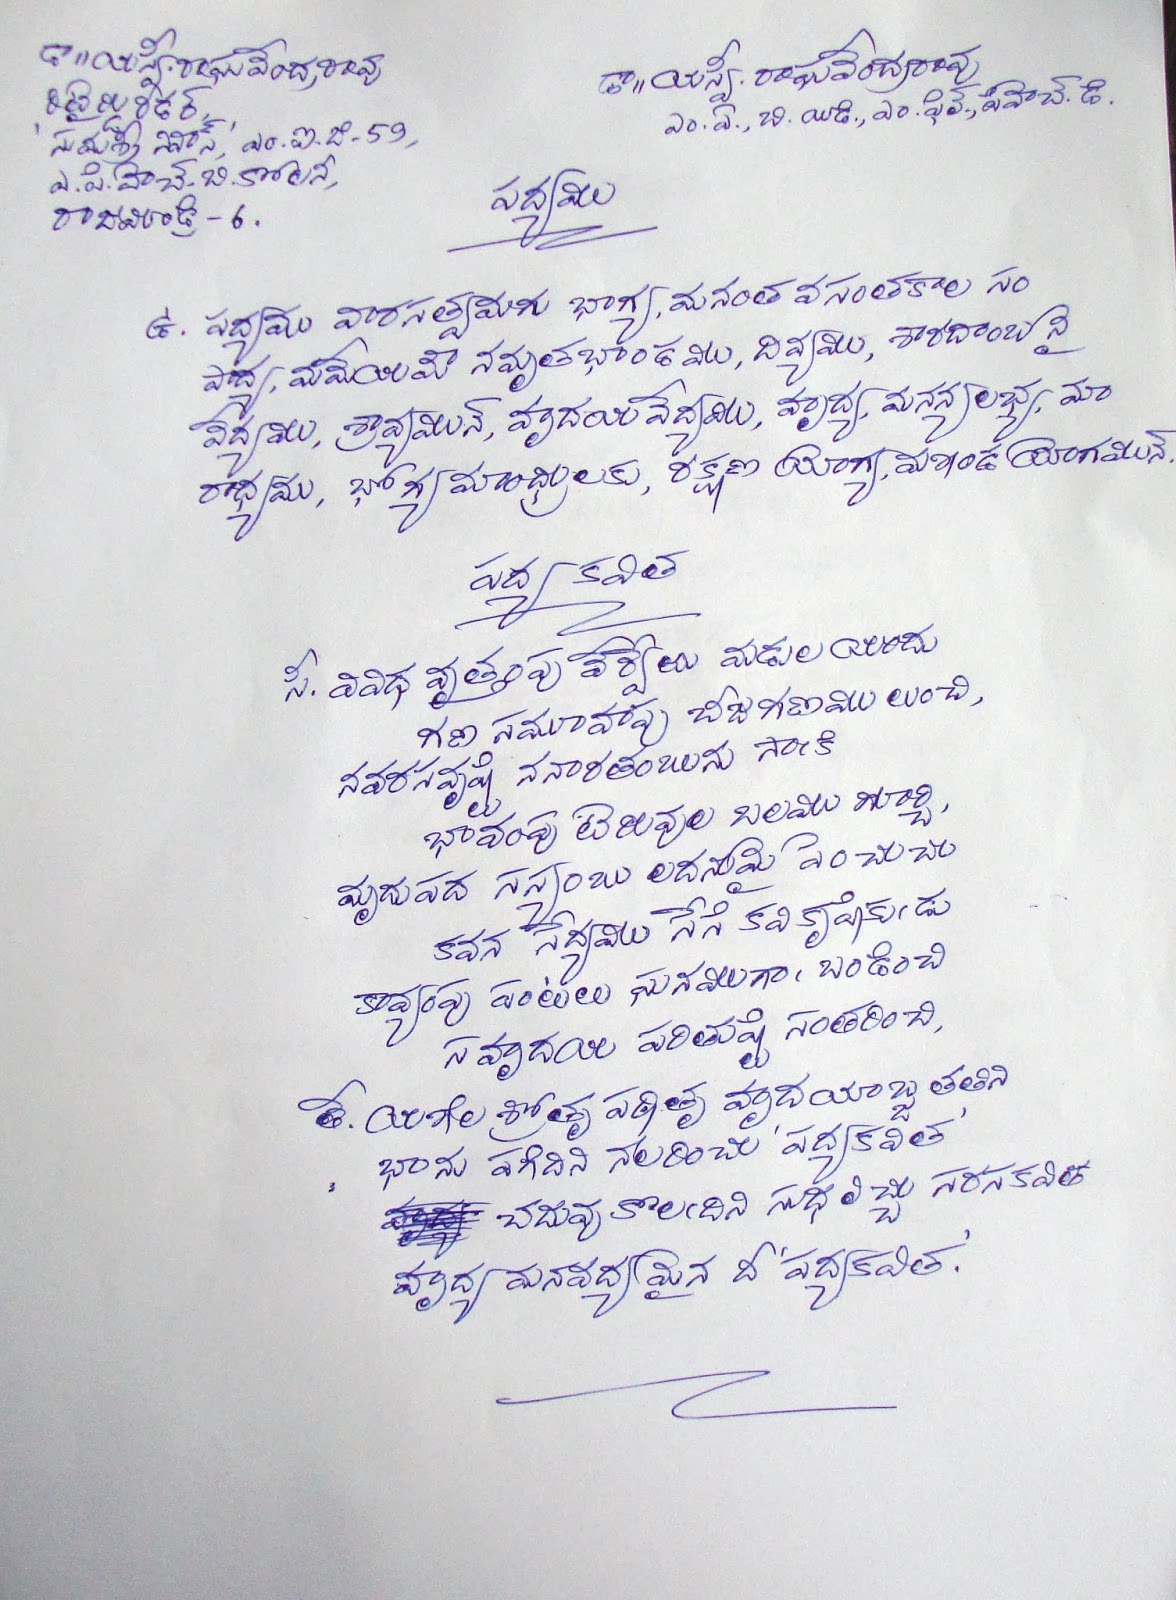 డా॥ యస్వీ. రాఘవేంద్రరావు
రిటైర్డు రీడర్,
'సుమశ్రీ నివాస్', ఎం.ఐ.జి-59,
ఎ.పి.హెచ్.బి. కాలని,
రాజమండ్రి - 6.
డా॥ యస్వీ. రాఘవేంద్రరావు
ఎం.ఏ., బి.యిడి., ఎం.ఫిల్., పిహెచ్.డి.
పద్యము
ఉ. పద్యము వారసత్వమగు భాగ్య, మనంత వసంతకాల సం
పాద్య, మమేయమౌ నమృతభాండము, దివ్యము, శారదాంబ నై
వేద్యము, శ్రావ్యమున్, హృదయవేద్యము, హృద్య, మనన్యలభ్య, మా
రాధ్యము, భోగ్యమాంధ్రులకు, రక్షణ యోగ్య, మఖండ యోగమున్.
పద్య కవిత
సీ. వివిధ వృత్తంపు వేర్వేరు మడుల యందు
గణ సమూహాపు బీజగణము లుంచి,
నవరసవృష్టి ననారతంబును సాఁకి
భావంపు టెరువుల బలము గూర్చి,
మృదుపద సస్యంబు లదనుమై పెంచుచు
కవన సేద్యము సేసె కవికృషికుఁడు
కావ్యంపు పంటలు ఘనముగాఁ బండించి
సహృదయ పరితుష్టి సంతరించి,
తే. యఖిల శ్రోతృ పఠితృ హృదయాబ్జ తతిని
భాను పగిదిని నలరించు 'పద్యకవిత'
చదువు కొలఁదిని సుధ లిచ్చు సరసకవిత
హృద్య మనవద్యమైన దీ 'పద్యకవిత'.